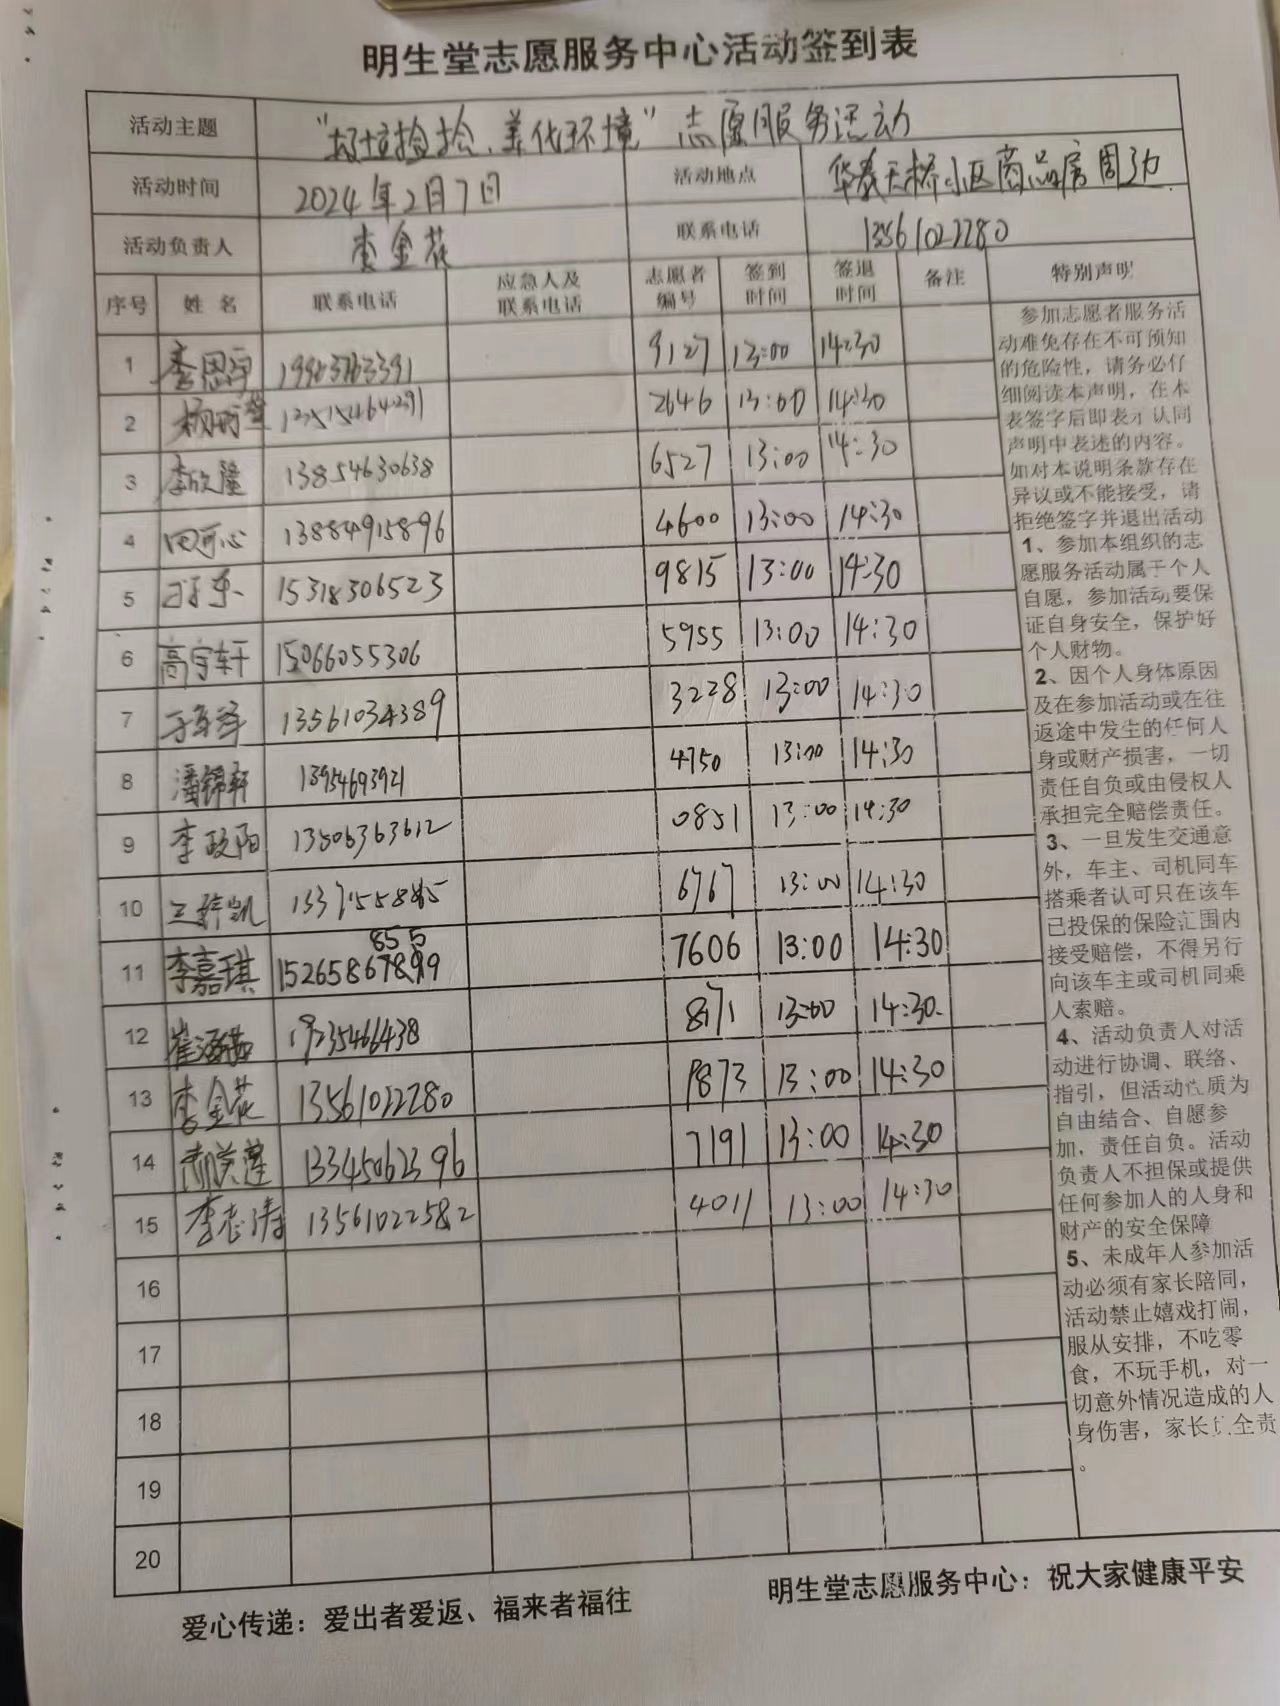 明生堂志愿服务中心活动签到表
活动主题 "垃圾捡拾、美化环境"志愿服务活动
活动时间 2024年2月7日 活动地点 华泰天桥小区商品房周边
活动负责人 李金花 联系电话 13561022280
序号 姓名 联系电话 应急人及联系电话 志愿者编号 签到时间 签退时间 备注 特别声明
1 9127 13:00 14:30
2 2646 13:00 14:30
3 李欣隆 13854630638 6527 13:00 14:30
4 田可心 13884915896 4600 13:00 14:30
5 15318306523 9815 13:00 14:30
6 高宇轩 15066055306 5955 13:00 14:30
7 13561034389 3228 13:00 14:30
8 潘锦轩 13954693921 4750 13:00 14:30
9 李政阳 13506363612 0851 13:00 14:30
10 6767 13:00 14:30
11 李嘉琪 7606 13:00 14:30
12 8171 13:00 14:30
13 李金花 13561022280 9873 13:00 14:30
14 13345062396 7191 13:00 14:30
15 李志涛 13561022582 4011 13:00 14:30
16
17
18
19
20
参加志愿者服务活
动难免存在不可预知
的危险性，请务必仔
细阅读本声明，在本
表签字后即表示认同
声明中表述的内容。
如对本说明条款存在
异议或不能接受，请
拒绝签字并退出活动
1、参加本组织的志
愿服务活动属于个人
自愿，参加活动要保
证自身安全，保护好
个人财物。
2、因个人身体原因
及在参加活动或在往
返途中发生的任何人
身或财产损害，一切
责任自负或由侵权人
承担完全赔偿责任。
3、一旦发生交通意
外，车主、司机同车
搭乘者认可只在该车
已投保的保险范围内
接受赔偿，不得另行
向该车主或司机同乘
人索赔。
4、活动负责人对活
动进行协调、联络、
指引，但活动性质为
自由结合、自愿参
加，责任自负。活动
负责人不担保或提供
任何参加人的人身和
财产的安全保障
5、未成年人参加活
动必须有家长陪同，
活动禁止嬉戏打闹，
服从安排，不吃零
食，不玩手机，对一
切意外情况造成的人
身伤害，家长负全责
。
爱心传递：爱出者爱返、福来者福往
明生堂志愿服务中心：祝大家健康平安